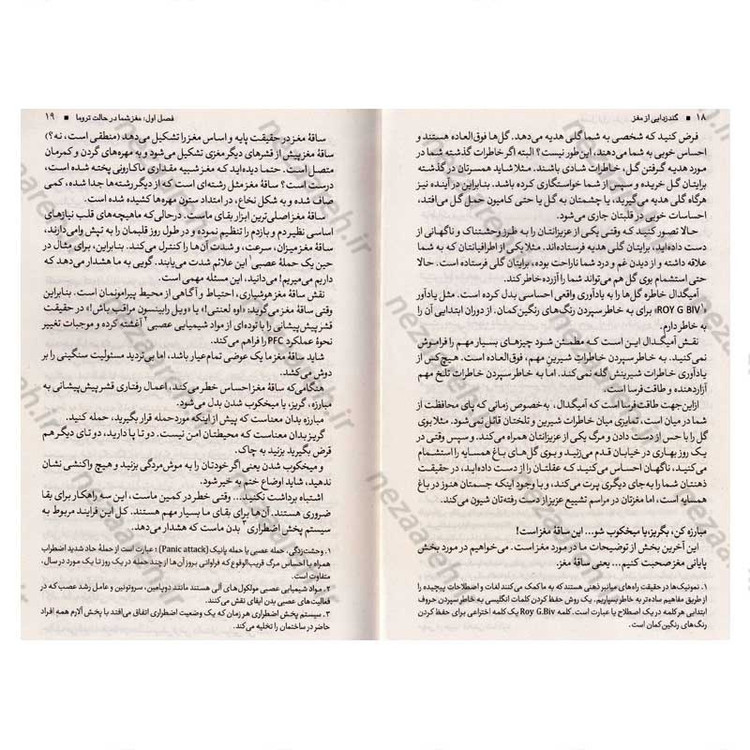 ۱۸ ■ گندزدایی از مغز
فرض کنید که شخصی به شما گلی هدیه می‌دهد. گل‌ها فوق‌العاده هستند و
احساس خوبی به شما می‌دهند، این‌طور نیست؟ البته اگر خاطرات گذشته شما در
مورد هدیه گرفتن گل، خاطرات شادی باشند. مثلا شاید همسرتان در گذشته
برایتان گل خریده و سپس از شما خواستگاری کرده باشد. بنابراین در آینده نیز
هرگاه گلی هدیه می‌گیرید، یا چشمتان به گل یا حتی کامیون حمل گل می‌افتد،
احساسات خوبی در قلبتان جاری می‌شود.
حالا تصور کنید که وقتی یکی از عزیزانتان را به طرز وحشتناک و ناگهانی از
دست داده‌اید، برایتان گلی هدیه فرستاده‌اند. مثلا یکی از اطرافیانتان که به شما
علاقه داشته و از دیدن غم و درد شما ناراحت بوده، برایتان گلی فرستاده است. حالا
حتی استشمام بوی گل هم می‌تواند شما را آزرده خاطر کند.
آمیگدال خاطره گل‌ها را به یادآوری واقعی احساسی بدل کرده است. مثل یادآور
«ROY G BIV»۱ برای به خاطر سپردن رنگ‌های رنگین‌کمان. از دوران ابتدایی آن را
به خاطر دارم.
نقش آمیگدال این است که مطمئن شود چیزهای بسیار مهم را فراموش
نمی‌کنید. به خاطر سپردن خاطرات شیرین مهم، فوق‌العاده است. هیچ‌کس از
یادآوری خاطرات شیرینش گله نمی‌کند. اما به خاطر سپردن خاطرات تلخ مهم
آزاردهنده و طاقت‌فرسا است.
ازاین‌جهت طاقت‌فرسا است که آمیگدال، به‌خصوص زمانی که پای محافظت از
شما در میان است، تمایزی میان خاطرات شیرین و تلختان قائل نمی‌شود. مثلا بوی
گل را با حس از دست دادن و مرگ یکی از عزیزانتان همراه می‌کند. و سپس وقتی در
یک روز بهاری در خیابان قدم می‌زنید و بوی گل‌های باغ همسایه را استشمام
می‌کنید، ناگهان احساس می‌کنید که عقلتان را از دست داده‌اید، در حقیقت
ذهنتان شما را به‌جای دیگری پرت می‌کند، و با وجود اینکه جسمتان هنوز در باغ
همسایه است، اما مغزتان در مراسم تشییع عزیز از دست رفته‌تان شیون می‌کند.
مبارزه کن، بگریز، یا میخکوب شو... این ساقهٔ مغز است!
این آخرین بخش از توضیحات ما در مورد مغز است. می‌خواهیم در مورد بخش
پایانی مغز صحبت کنیم... یعنی ساقهٔ مغز.
۱. نمونیک‌ها در حقیقت راه‌های میانبر ذهنی هستند که به ما کمک می‌کنند لغات و اصطلاحات پیچیده را
از طریق مفاهیم ساده‌تر به خاطر بسپاریم. یک روش حفظ کردن کلمات انگلیسی به خاطر سپردن حروف
ابتدایی هر کلمه در یک اصطلاح یا عبارت است. کلمه Roy G.Biv یک کلمه اختراعی برای حفظ کردن
رنگ‌های رنگین کمان است.
فصل اول: مغز شما در حالت تروما ■ ۱۹
ساقهٔ مغز در حقیقت پایه و اساس مغز را تشکیل می‌دهد (منطقی است، نه؟)
ساقهٔ مغز پیش از قشرهای دیگر مغزی تشکیل می‌شود و به مهره‌های گردن و کمرمان
متصل است. حتما دیده‌اید که مغز شبیه مقداری ماکارونی پخته شده است،
درست است؟ ساقهٔ مغز مثل رشته‌ای است که از دیگر رشته‌ها جدا شده، کمی
صاف شده و به شکل نخاع، در امتداد ستون مهره‌ها کشیده شده است.
ساقهٔ مغز اصلی‌ترین ابزار بقای ماست. درحالی‌که ماهیچه‌های قلب نیازهای
اساسی نظیر دم و بازدم را تنظیم نموده و در طول روز قلبمان را به تپش وامی‌دارند،
ساقهٔ مغز میزان، سرعت، و شدت آن‌ها را کنترل می‌کند. بنابراین، برای مثال در
حین یک حملهٔ عصبی۱ این علائم شدت می‌یابند. گویی به ما هشدار می‌دهد که
داریم می‌میریم! می‌دانید، این مسئله مهمی است.
نقش ساقهٔ مغز هوشیاری، احتیاط و آگاهی از محیط پیرامونمان است. بنابراین
وقتی ساقهٔ مغز می‌گوید: «اوه لعنتی!» یا «ویل رابینسون مراقب باش!» در حقیقت
قشر پیش‌پیشانی را با توده‌ای از مواد شیمیایی عصبی۲ آغشته کرده و موجبات تغییر
نحوهٔ عملکرد PFC را فراهم می‌کند.
شاید ساقهٔ مغز ما یک عوضی تمام‌عیار باشد، اما بی‌تردید مسئولیت سنگینی را بر
دوش می‌کشد.
هنگامی‌که ساقهٔ مغز احساس خطر می‌کند، اعمال رفتاری قشر پیش‌پیشانی به
مبارزه، گریز، یا میخکوب شدن بدل می‌شود.
مبارزه بدان معناست که پیش از اینکه مورد حمله قرار بگیرید، حمله کنید.
گریز بدان معناست که محیطتان امن نیست. دو تا پا دارید، دو تای دیگر هم
قرض بگیرید بزنید به چاک.
و میخکوب شدن یعنی اگر خودتان را به موش‌مردگی بزنید و هیچ واکنشی نشان
ندهید، شاید اوضاع ختم به خیر شود.
اشتباه برداشت نکنید... وقتی خطر در کمین ماست، این سه راهکار برای بقا
ضروری هستند. آن‌ها برای بقای ما بسیار مهم هستند. کل این فرایند مربوط به
سیستم پخش اضطراری۳ بدن ماست که هشدار می‌دهد.
۱. وحشت‌زدگی، حمله عصبی یا حمله پانیک (Panic attack)؛ عبارت است از حملهٔ حاد شدید اضطراب
همراه با احساس مرگ قریب‌الوقوع که فراوانی بروز آن‌ها از چند حمله در یک روز تا یک مورد در سال،
متفاوت است.
۲. مواد شیمیایی عصبی مولکول‌های آلی هستند مانند دوپامین، سروتونین و عامل رشد عصب که در
فعالیت‌های عصبی بدن ایفای نقش می‌کنند.
۳. سیستم پخش اضطراری هر زمان که یک وضعیت اضطراری اتفاق می‌افتد با پخش آلارم همه افراد
حاضر در ساختمان را تخلیه می‌کند.
nezaareh.ir